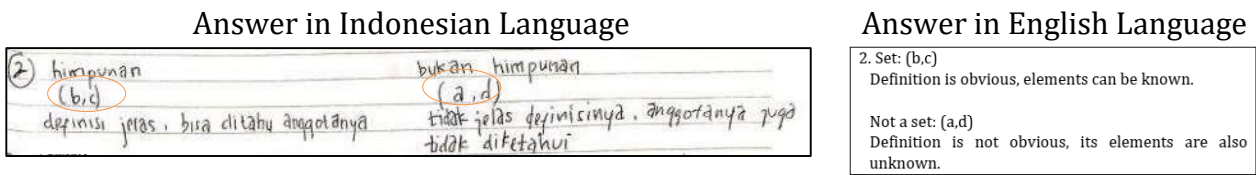 Answer in Indonesian Language
Answer in English Language
2 himpunan
(b,c)
definisi jelas, bisa ditahu anggotanya
bukan himpunan
(a,d)
tidak jelas definisinya, anggotanya juga
tidak diketahui
2. Set: (b,c)
Definition is obvious, elements can be known.
Not a set: (a,d)
Definition is not obvious, its elements are also
unknown.